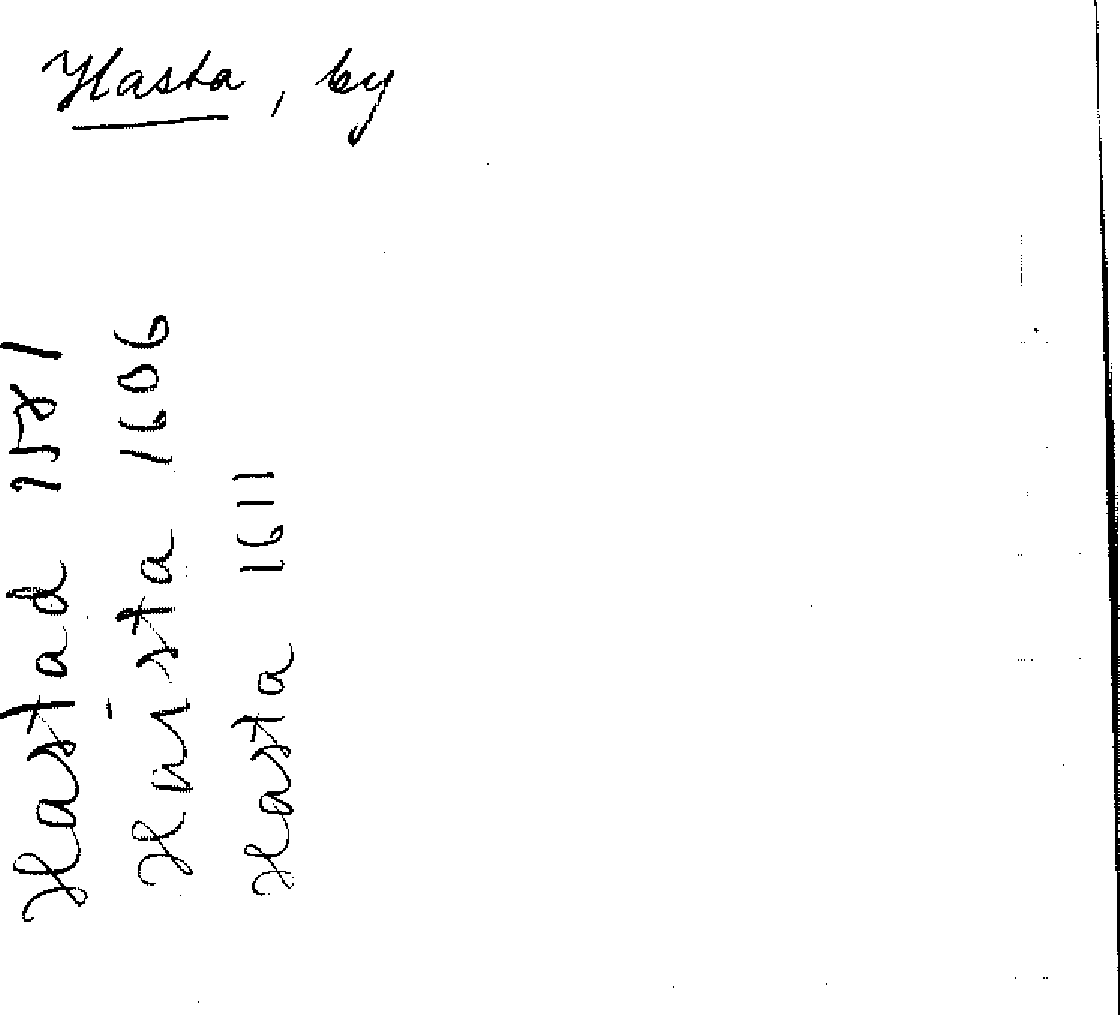 Hasta, by
Hastad 1581
Haista 1606
Hasta 1611